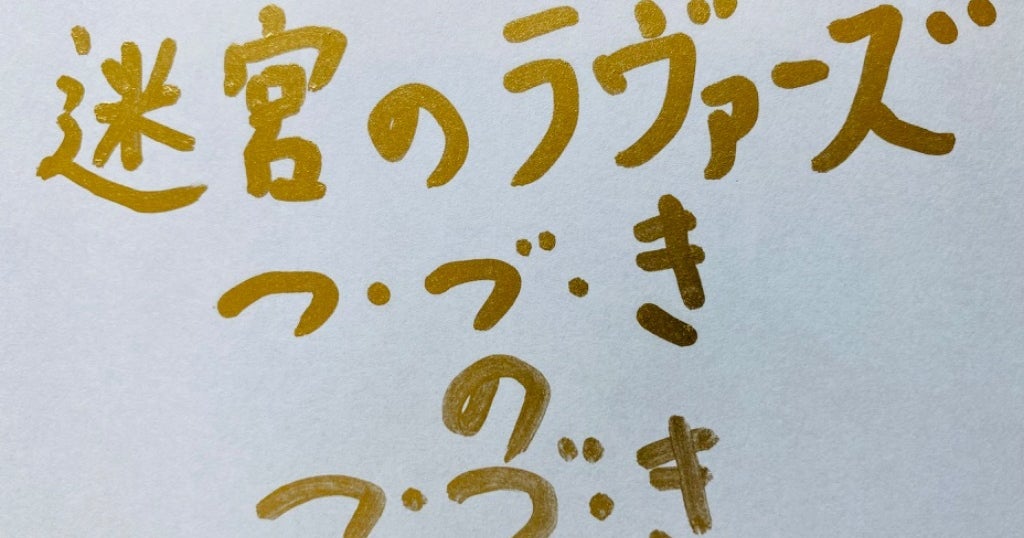 迷宮のラヴァーズ
つ・づ・き
の
つ・づ・き